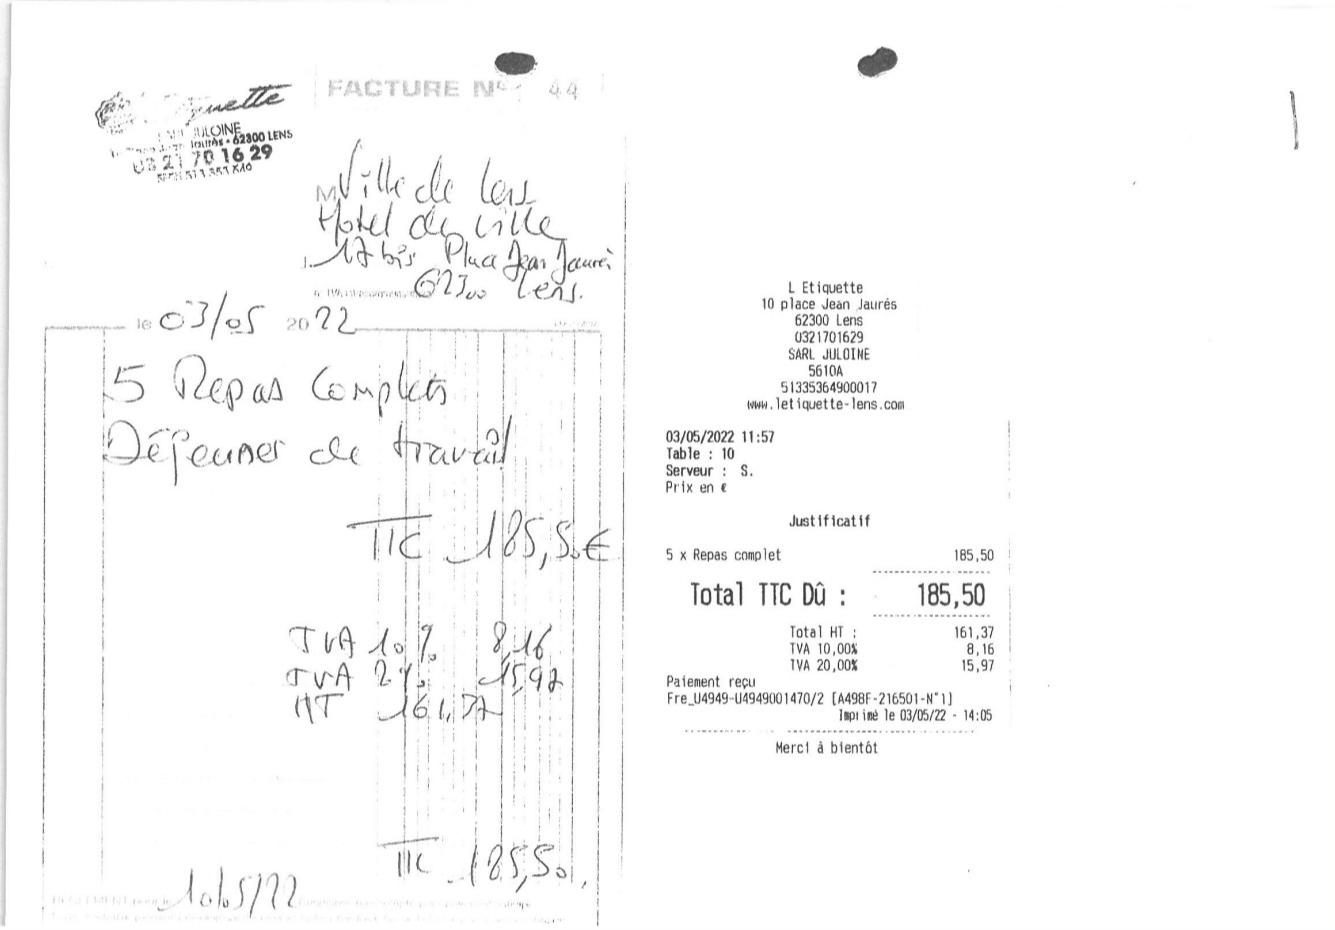 FACTURE N° 44
JULOINE
Jaurès • 62300 LENS
03 21 70 16 29
Ville de Lens
Hotel de ville
17 bis Place Jean Jaurès
62300 Lens.
le 03/05 2022
5 Repas Complets
Déjeuner de travail
TTC 185,50€
TVA 10% 8,16
TVA 2%. 15,97
HT 161,37
TTC 185,50
10/05/22
L Etiquette
10 place Jean Jaurés
62300 Lens
0321701629
SARL JULOINE
5610A
51335364900017
www.letiquette-lens.com
03/05/2022 11:57
Table : 10
Serveur : S.
Prix en €
Justificatif
5 x Repas complet 185,50
Total TTC Dû : 185,50
Total HT : 161,37
TVA 10,00% 8,16
TVA 20,00% 15,97
Paiement reçu
Fre_U4949-U4949001470/2 [A498F-216501-N°1]
Imprimé le 03/05/22 - 14:05
Merci à bientôt